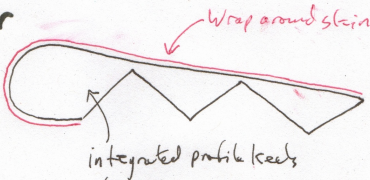 r
Wrap around skin
integrated profile keels